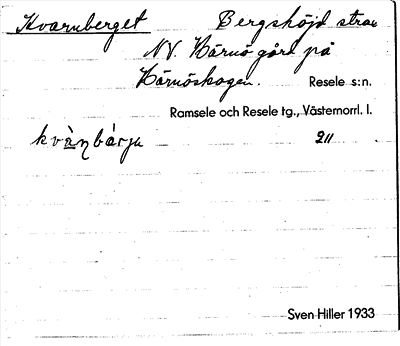 Kvarnberget Bergshöjd strax
NV. Härnö gård på
Härnöskogen. Resele s:n.
Ramsele och Resele tg., Västernorrl. l.
kvàṇbárju 211
Sven Hiller 1933